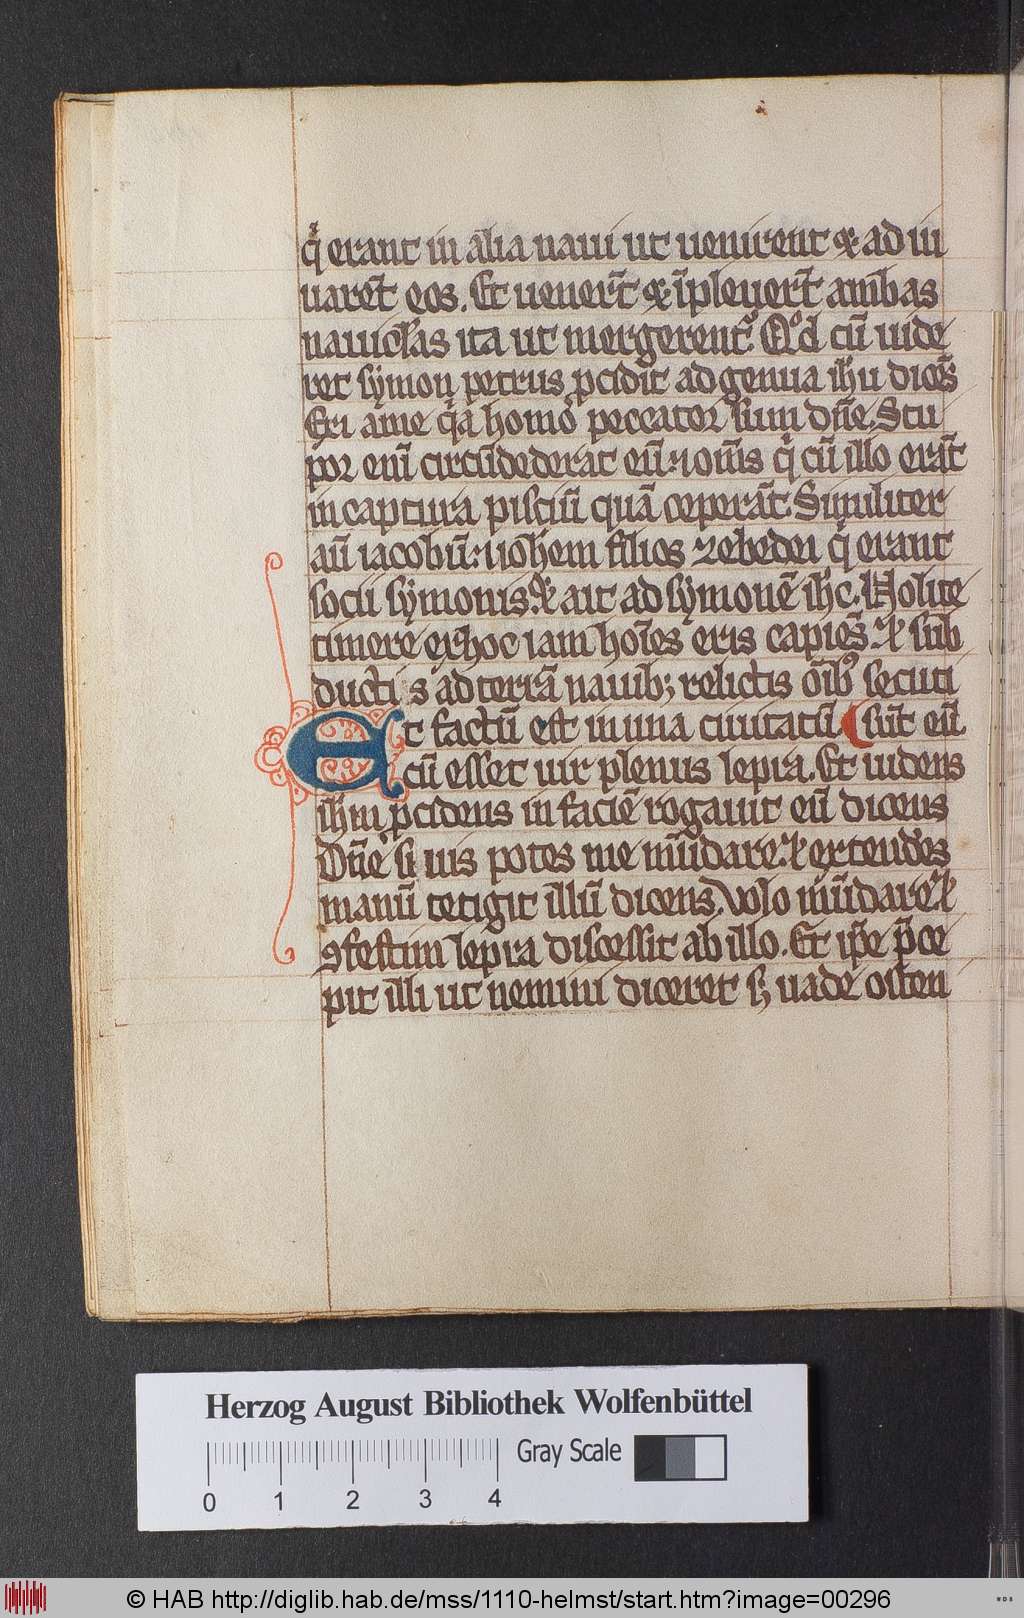 qͥ erant in alia naui ut uenirent ⁊ ad iu
uarēt eos. Et uener̄t ⁊ īpleuer̄t ambas
nauiclas ita ut mergerent᷑. Qᵒd cū uide
ret symon petrus ꝓcidit ad genua ihu dicēs
Exi a me qͥa homo peccator sum dn̄e. Stu
por enī circūdederat eū ⁊ om̄s qͥ cū illo erāt
in captura pisciū quā ceperāt. Similiter
aū iacobū ⁊ ioh̄em filios zebedei qͥ erant
socii symonis. ⁊ ait ad symonē ihc. Nolite
timere ex hoc iam hoīes eris capiēs. ⁊ sub
ducti s ad terrā nauibꝫ relictis oīb᷒ secuti
Et factū est in una ciuitatū. sūt eū.
cū esset uir plenus lepra. Et uidens
ihm ꝓcidens in faciē rogauit eū dicens
Dn̄e si uis potes me mūdare. ⁊ extendēs
manū tetigit illū dicens. Volo mūdare. ⁊
ꝯfestim lepra discessit ab illo. Et ip̄e p̄ce
pit illi ut nemini diceret sꝫ uade osten
Herzog August Bibliothek Wolfenbüttel
Gray Scale
0 1 2 3 4
© HAB http://diglib.hab.de/mss/1110-helmst/start.htm?image=00296